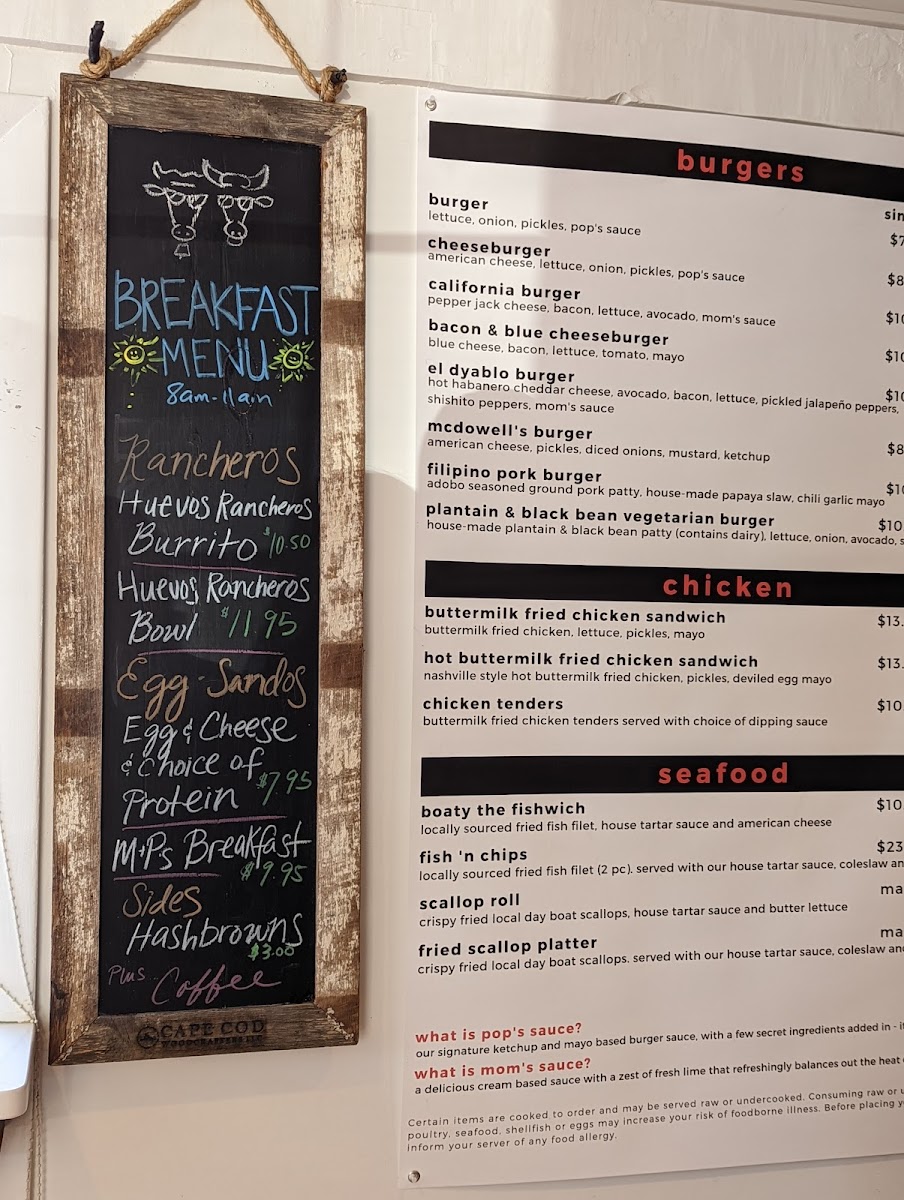 BREAKFAST
MENU
8am-11am
Rancheros
Huevos Rancheros
Burrito $10.50
Huevos Rancheros
Bowl $11.95
Egg-Sandos
Egg & Cheese
& Choice of
Protein $7.95
M+P's Breakfast
$9.95
Sides
Hashbrowns
$3.00
Plus
Coffee
CAPE COD
WOODCRAFTERS LLC
burgers
burger
lettuce, onion, pickles, pop's sauce
cheeseburger
american cheese, lettuce, onion, pickles, pop's sauce
california burger
pepper jack cheese, bacon, lettuce, avocado, mom's sauce
bacon & blue cheeseburger
blue cheese, bacon, lettuce, tomato, mayo
el dyablo burger
hot habanero cheddar cheese, avocado, bacon, lettuce, pickled jalapeño peppers,
shishito peppers, mom's sauce
mcdowell's burger
american cheese, pickles, diced onions, mustard, ketchup
filipino pork burger
adobo seasoned ground pork patty, house-made papaya slaw, chili garlic mayo
plantain & black bean vegetarian burger $10
house-made plantain & black bean patty (contains dairy), lettuce, onion, avocado,
chicken
buttermilk fried chicken sandwich $13.
buttermilk fried chicken, lettuce, pickles, mayo
hot buttermilk fried chicken sandwich $13.
nashville style hot buttermilk fried chicken, pickles, deviled egg mayo
chicken tenders $10
buttermilk fried chicken tenders served with choice of dipping sauce
seafood
boaty the fishwich $10.
locally sourced fried fish filet, house tartar sauce and american cheese
fish 'n chips $23
locally sourced fried fish filet (2 pc). served with our house tartar sauce, coleslaw an
scallop roll ma
crispy fried local day boat scallops, house tartar sauce and butter lettuce
fried scallop platter ma
crispy fried local day boat scallops. served with our house tartar sauce, coleslaw and
what is pop's sauce?
our signature ketchup and mayo based burger sauce, with a few secret ingredients added in - it
what is mom's sauce?
a delicious cream based sauce with a zest of fresh lime that refreshingly balances out the heat
Certain items are cooked to order and may be served raw or undercooked. Consuming raw or u
poultry, seafood, shellfish or eggs may increase your risk of foodborne illness. Before placing y
inform your server of any food allergy.